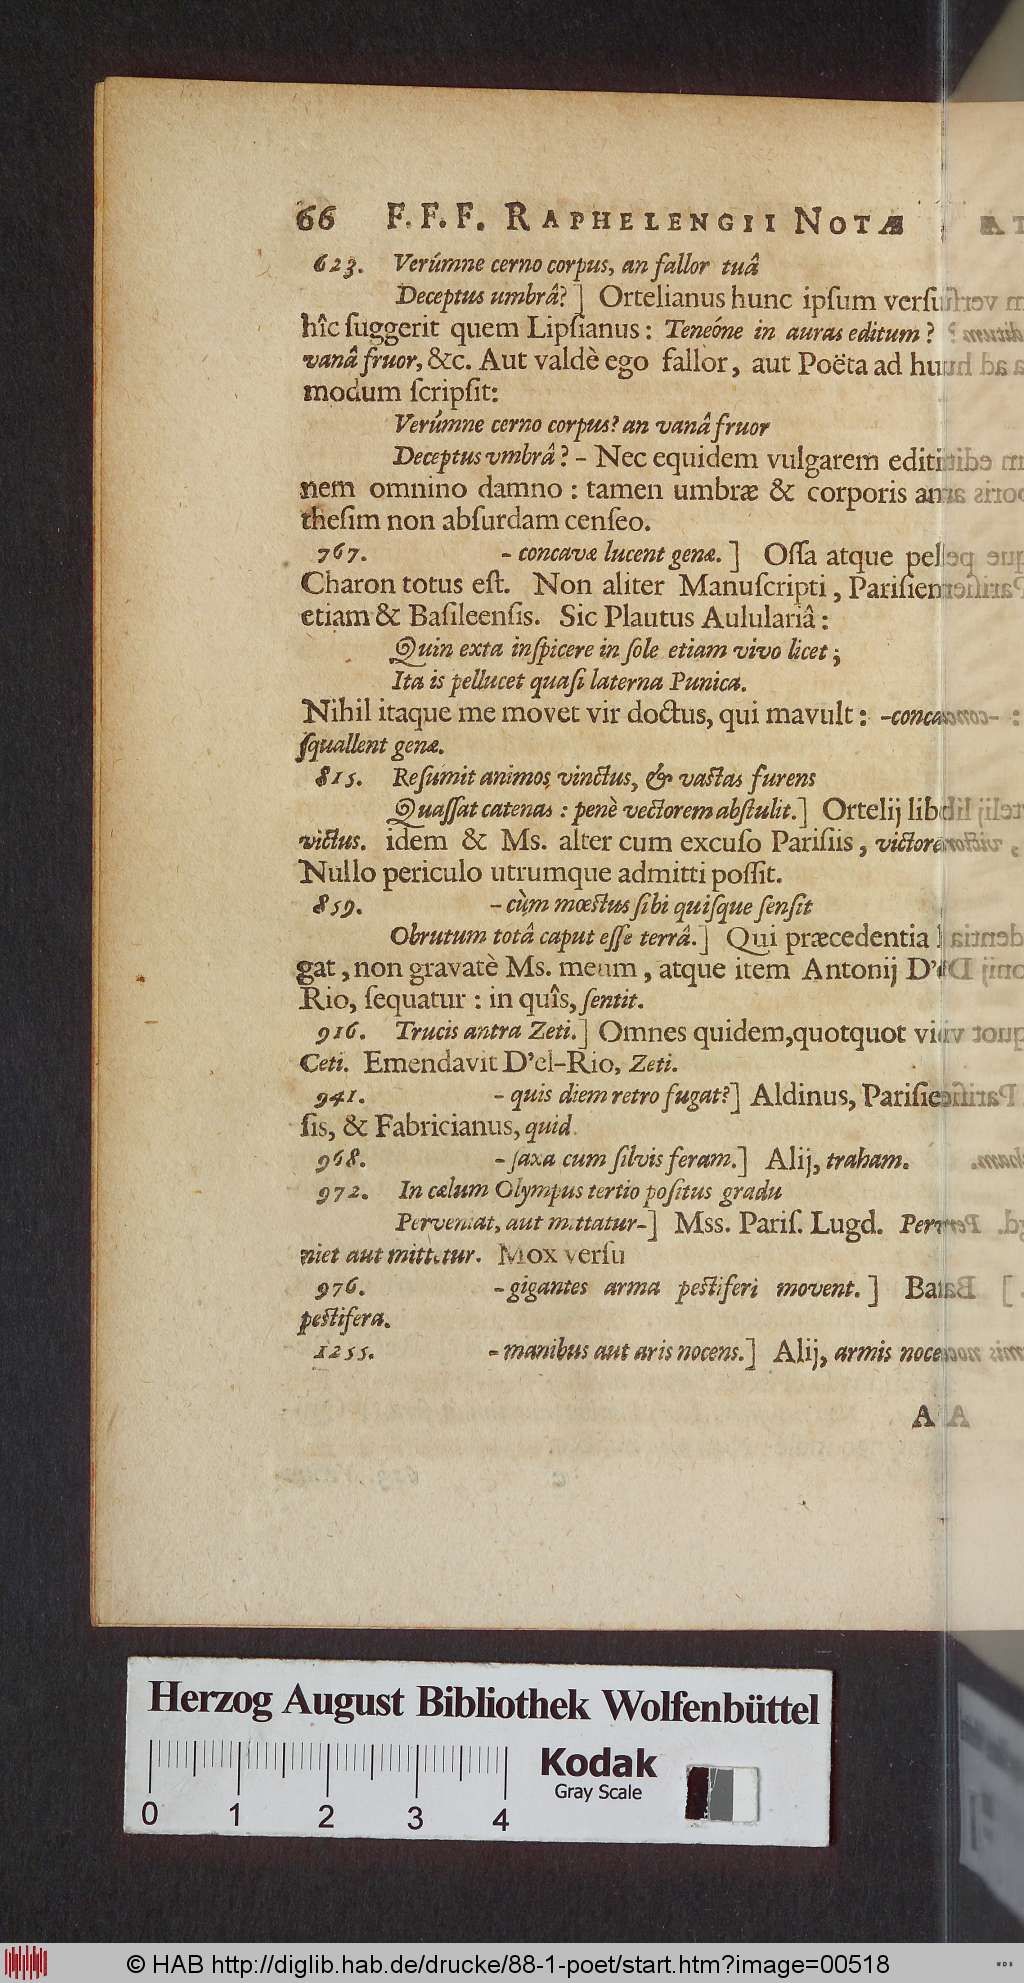 66 F. F. F. RAPHELENGII NOTÆ
623. Verúmne cerno corpus, an fallor tuâ
Deceptus umbrâ?] Ortelianus hunc ipsum versu
hîc suggerit quem Lipsianus: Teneóne in auras editum?
vanâ fruor, &c. Aut valdè ego fallor, aut Poëta ad hu
modum scripsit:
Verúmne cerno corpus? an vanâ fruor
Deceptus vmbrâ? - Nec equidem vulgarem editi
nem omnino damno: tamen umbræ & corporis an
thesim non absurdam censeo.
767. - concavæ lucent genæ.] Ossa atque pel
Charon totus est. Non aliter Manuscripti, Parisien
etiam & Basileensis. Sic Plautus Aululariâ:
Quin exta inspicere in sole etiam vivo licet;
Ita is pellucet quasi laterna Punica.
Nihil itaque me movet vir doctus, qui mavult: -conca
squallent genæ.
815. Resumit animos vinctus, & vastas furens
Quassat catenas: penè vectorem abstulit.] Ortelij lib
victus. idem & Ms. alter cum excuso Parisiis, victore
Nullo periculo utrumque admitti possit.
859. - cùm mœstus sibi quisque sensit
Obrutum totâ caput esse terrâ.] Qui præcedentia
gat, non gravatè Ms. meum, atque item Antonij D'
Rio, sequatur: in quîs, sentit.
916. Trucis antra Zeti.] Omnes quidem, quotquot vi
Ceti. Emendavit D'el-Rio, Zeti.
941. - quis diem retro fugat?] Aldinus, Parisie
sis, & Fabricianus, quid
968. - saxa cum silvis feram.] Alij, traham.
972. In cælum Olympus tertio positus gradu
Perveniat, aut mittatur-] Mss. Paris. Lugd. Perve
niet aut mittetur. Mox versu
976. - gigantes arma pestiferi movent.] Bas
pestifera.
1255. - manibus aut aris nocens.] Alij, armis noce
A
Herzog August Bibliothek Wolfenbüttel
0 1 2 3 4
Kodak
Gray Scale
© HAB http://diglib.hab.de/drucke/88-1-poet/start.htm?image=00518